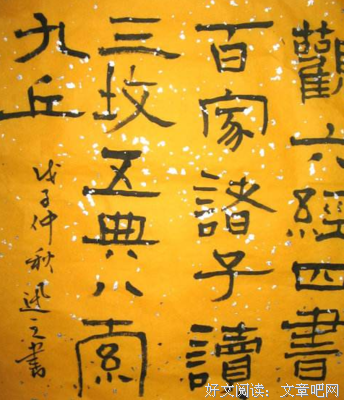 觀六經四書
百家諸子讀
三坟五典八索
九丘
戊子仲秋迅之書
好文阅读：文章吧网